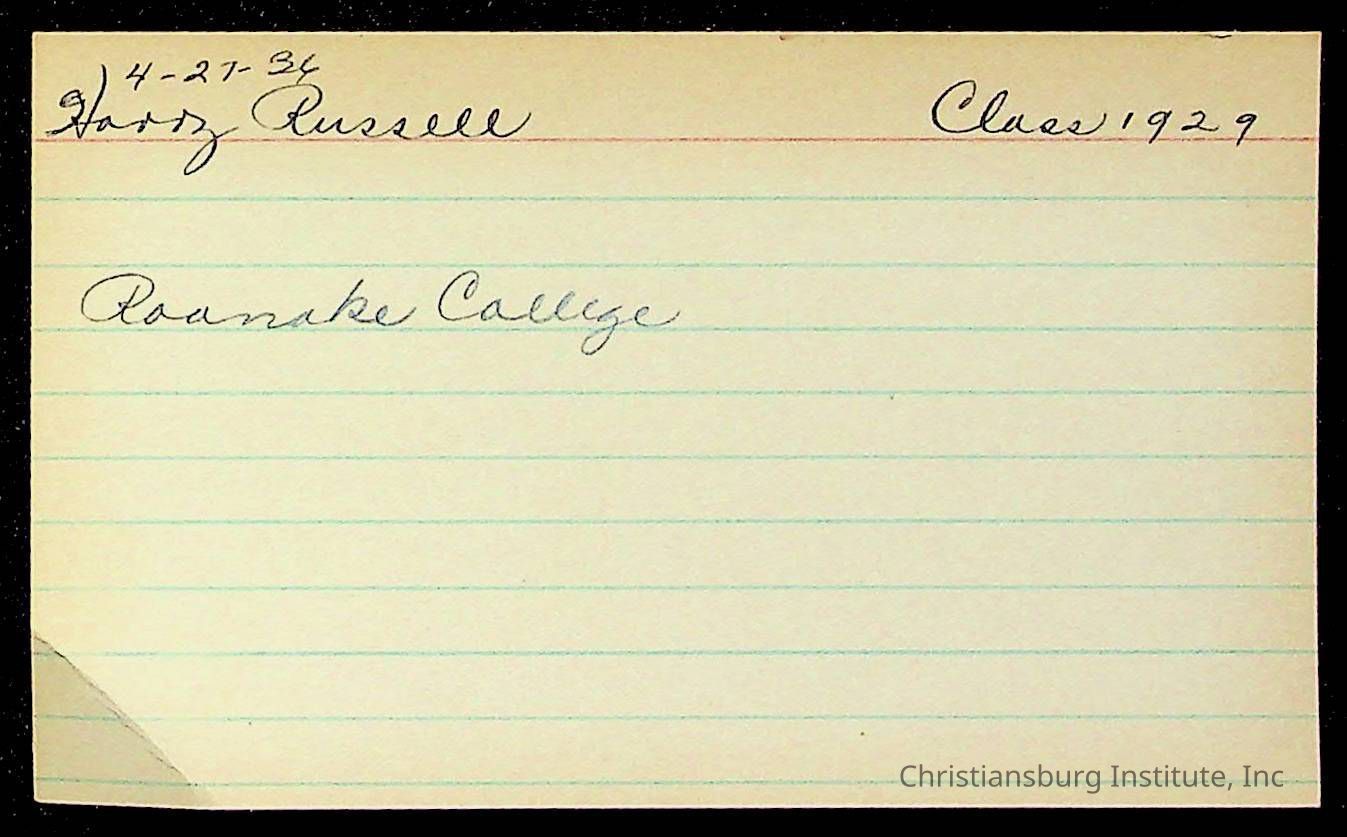 4-27-36
Harry Russell Class 1929
Roanoke College
Christiansburg Institute, Inc